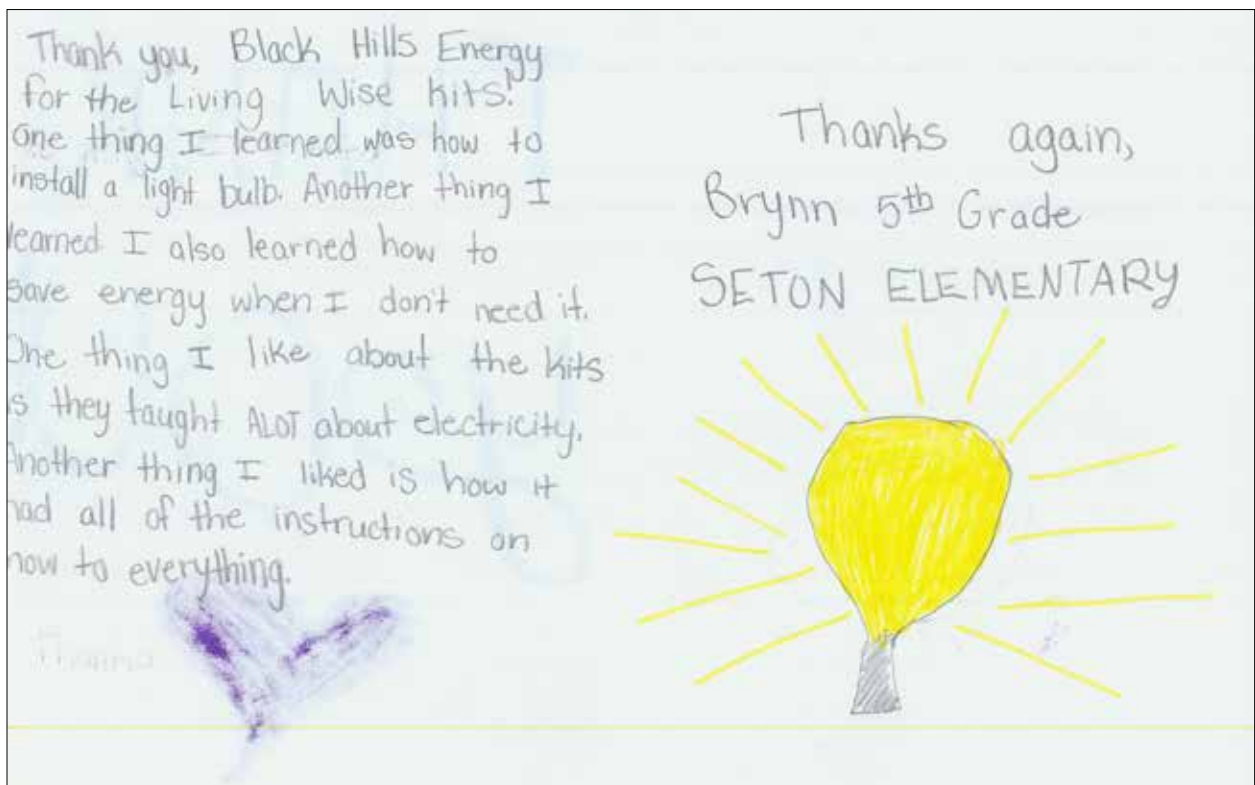 Thank you, Black Hills Energy
for the Living Wise Kits!
One thing I learned was how to
install a light bulb. Another thing I
learned I also learned how to
save energy when I don't need it.
One thing I like about the kits
is they taught ALOT about electricity.
Another thing I liked is how it
had all of the instructions on
how to everything.
Thanks again,
Brynn 5th Grade
SETON ELEMENTARY